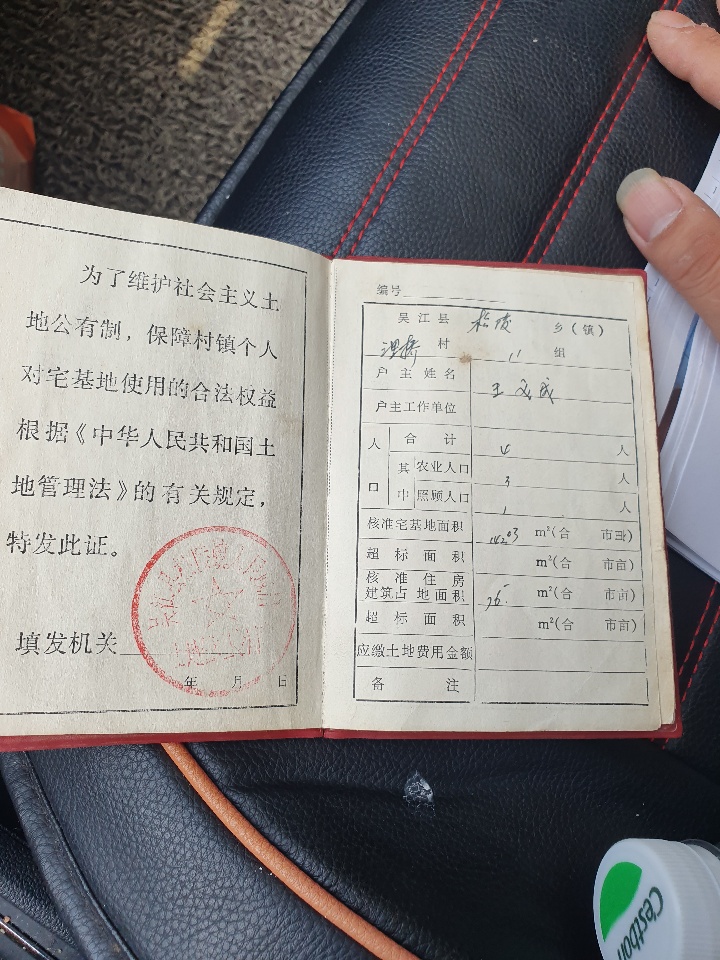 为了维护社会主义土
地公有制，保障村镇个人
对宅基地使用的合法权益
根据《中华人民共和国土
地管理法》的有关规定，
特发此证。
填发机关
年 月 日
编号
吴江县 松陵 乡（镇）
村 11 组
户主姓名 王
户主工作单位
人口 合计 4 人
其中 农业人口 3 人
照顾人口 1 人
核准宅基地面积 m²（合 市亩）
超标面积 m²（合 市亩）
核准住房
建筑占地面积 m²（合 市亩）
超标面积 m²（合 市亩）
应缴土地费用金额
备注
C'estbon